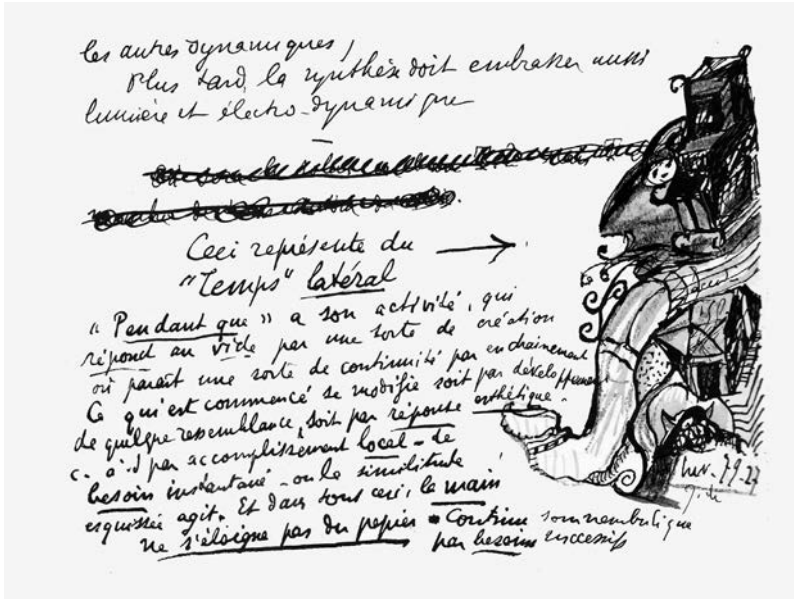 les autres dynamiques,
Plus tard, la synthèse doit embrasser aussi
lumière et électro-dynamique
Ceci représente du
"Temps" latéral
" Pendant que " a son activité, qui
répond au vide par une sorte de création
où paraît une sorte de continuité par enchainement
Ce qui est commencé se modifie soit par développement
de quelque ressemblance, soit par réponse esthétique -
c. à. d par accomplissement local - de
besoin instantané - ou la similitude
esquissée agit. Et dans tout ceci, la main
ne s'éloigne pas du papier - Continu somnambulique
par besoins successifs